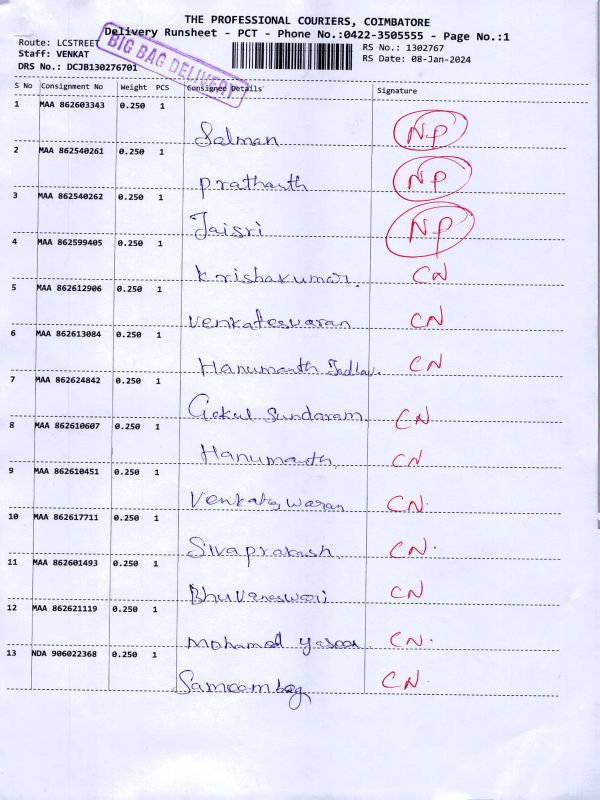 THE PROFESSIONAL COURIERS, COIMBATORE
Delivery Runsheet - PCT - Phone No.:0422-3505555 - Page No.:1
Route: LCSTREET
Staff: VENKAT
DRS No.: DCJB130276701
BIG BAG DELIVERY
RS No.: 1302767
RS Date: 08-Jan-2024
S No Consignment No Weight PCS Consignee Details Signature
1 MAA 862603343 0.250 1
Salman NP
2 MAA 862540261 0.250 1
Prathanth NP
3 MAA 862540262 0.250 1
Jaisri NP
4 MAA 862599405 0.250 1
Krishakumar. CN
5 MAA 862612906 0.250 1
Venkatesvaran CN
6 MAA 862613084 0.250 1
Hanumanth CN
7 MAA 862624842 0.250 1
Gokul Sundaram CN
8 MAA 862610607 0.250 1
Hanumanth CN
9 MAA 862610451 0.250 1
Venkateswaran CN.
10 MAA 862617711 0.250 1
Sivaprakash. CN.
11 MAA 862601493 0.250 1
Bhuvaneswari CN
12 MAA 862621119 0.250 1
Mohamed CN.
13 NDA 906022368 0.250 1
CN.